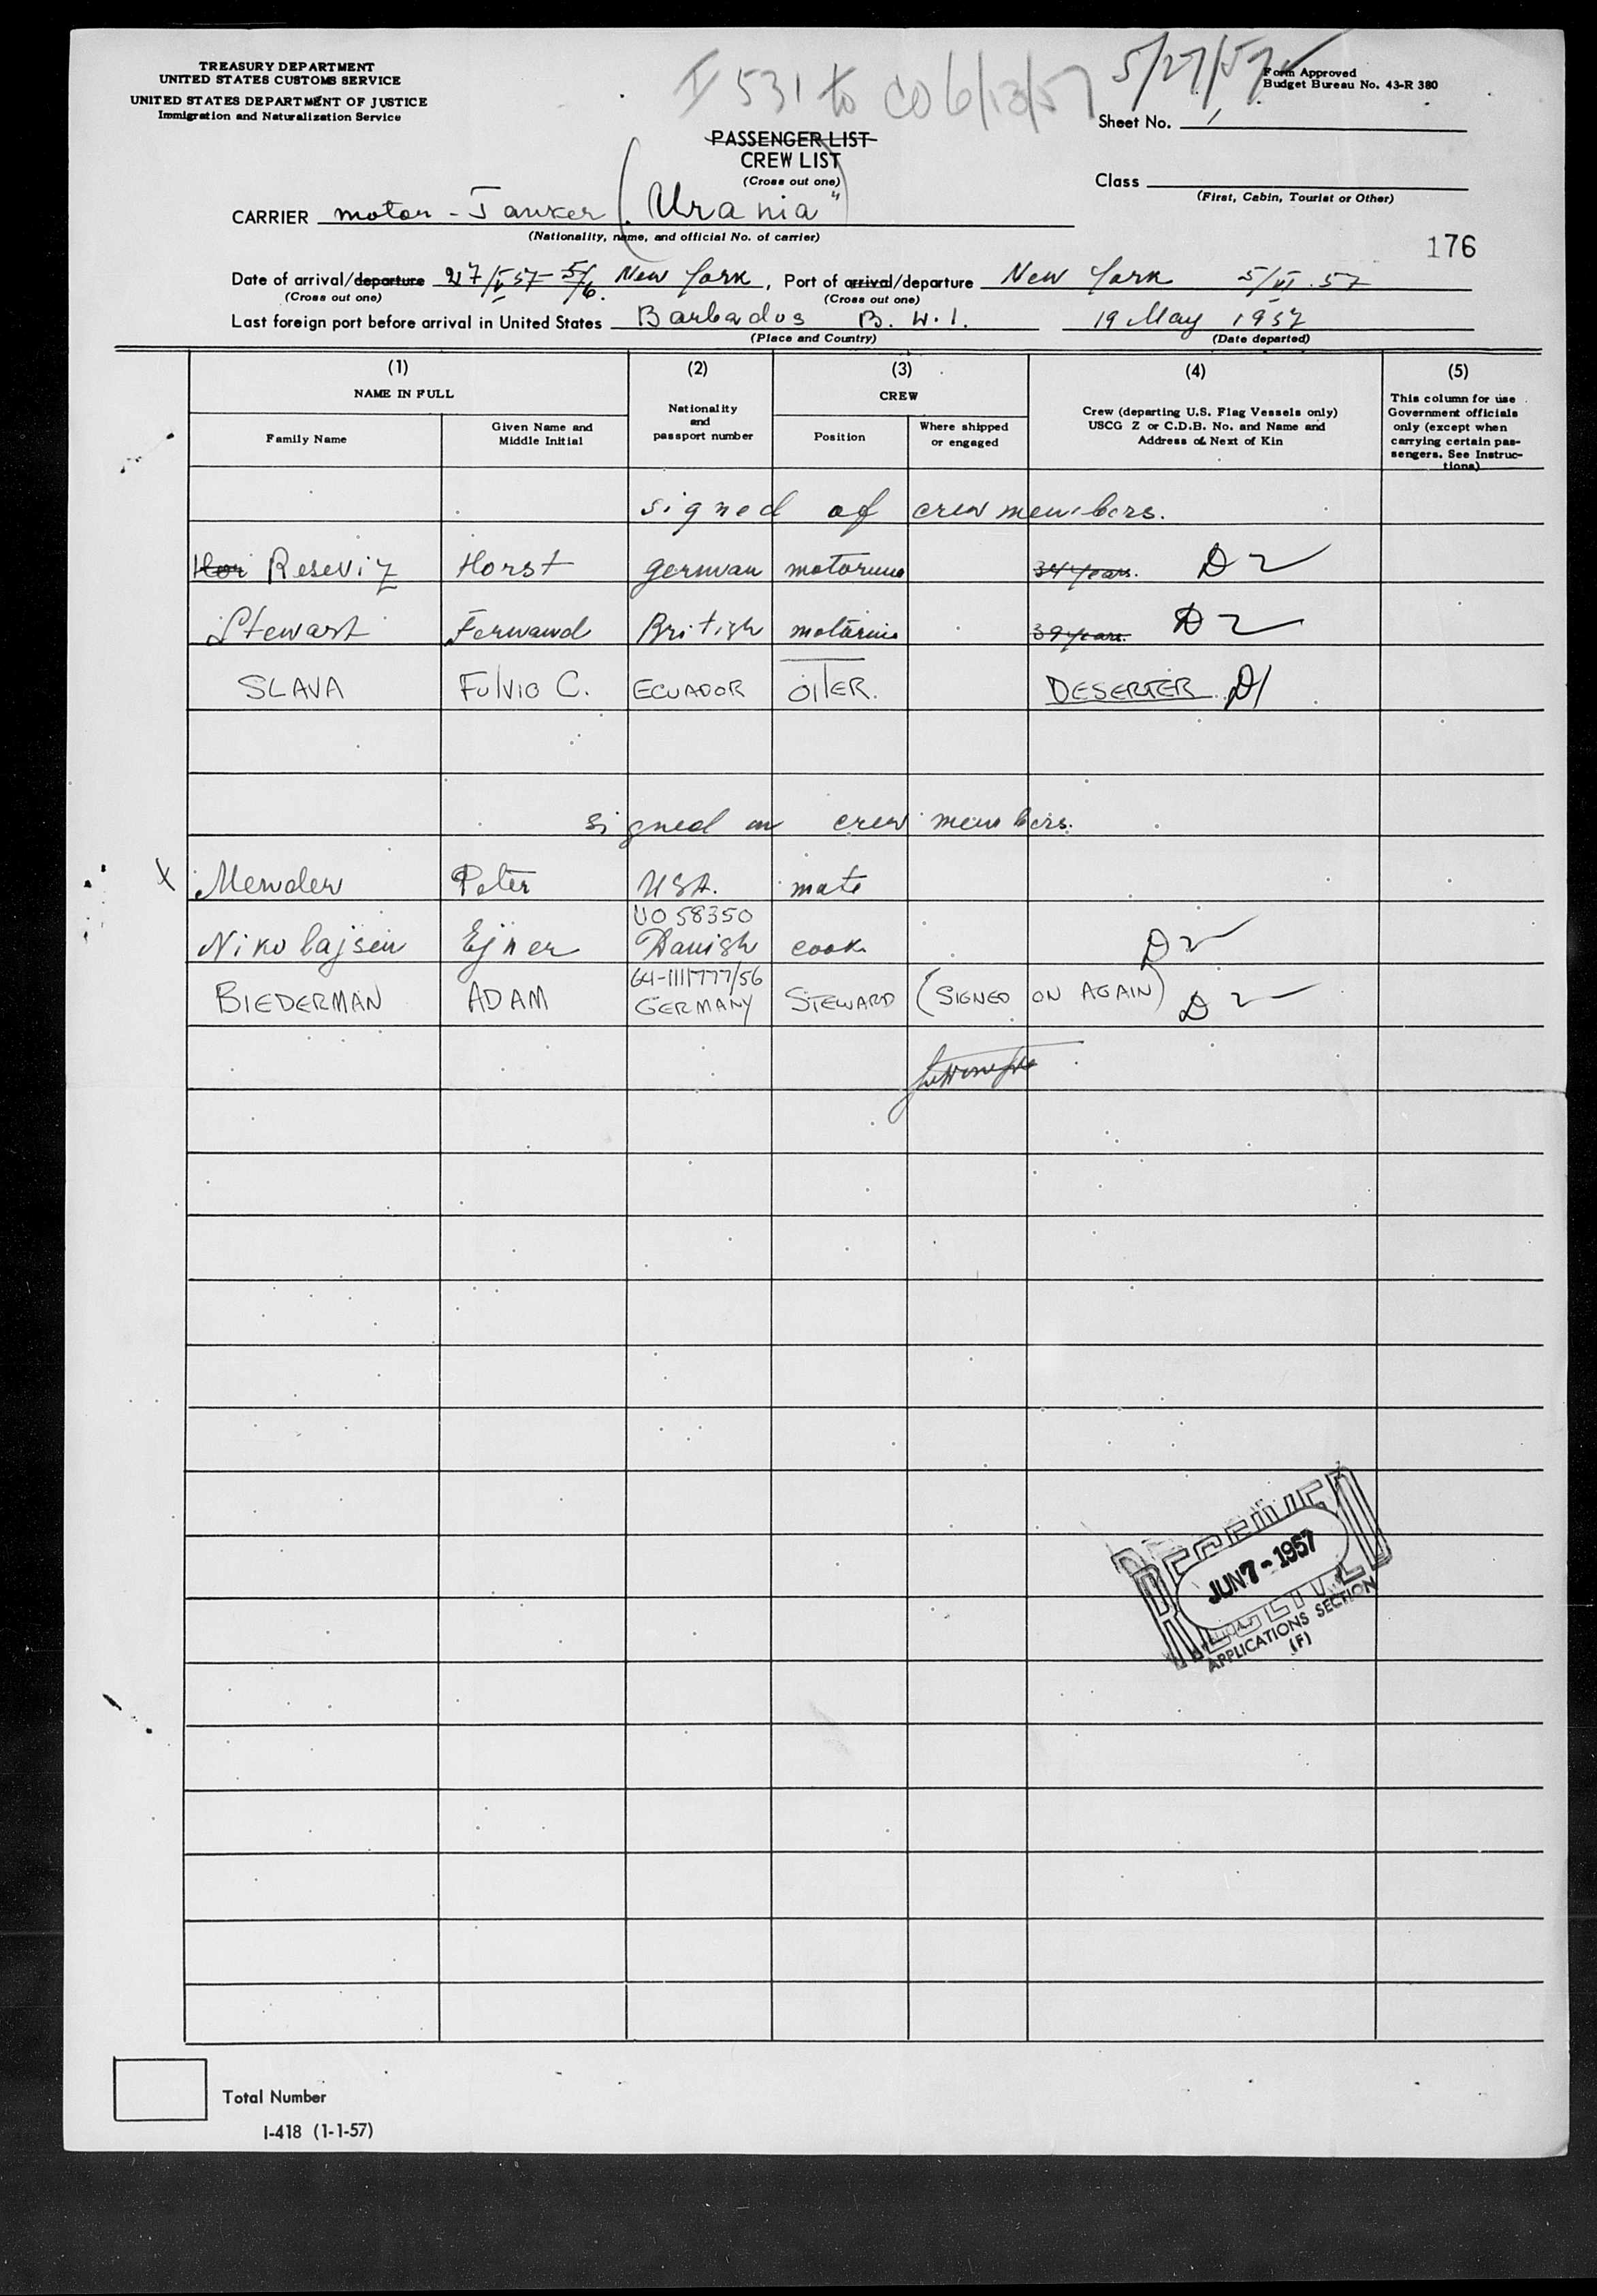 TREASURY DEPARTMENT
UNITED STATES CUSTOMS SERVICE
UNITED STATES DEPARTMENT OF JUSTICE
Immigration and Naturalization Service
I 531 to CO 6/13/57
5/27/57
Form Approved
Budget Bureau No. 43-R 380
Sheet No. 1
PASSENGER LIST
CREW LIST
(Cross out one)
Class
(First, Cabin, Tourist or Other)
CARRIER motor - Tanker "Urania"
(Nationality, name, and official No. of carrier)
176
Date of arrival/departure 27/V 57 - 5/6. New York, Port of arrival/departure New York 5/VI.57
(Cross out one) (Cross out one)
Last foreign port before arrival in United States Barbados B.W.I. 19 May 1957
(Place and Country) (Date departed)
(1) (2) (3) (4) (5)
NAME IN FULL
Family Name
Given Name and
Middle Initial
Nationality
and
passport number
CREW
Position
Where shipped
or engaged
Crew (departing U.S. Flag Vessels only)
USCG Z or C.D.B. No. and Name and
Address of Next of Kin
This column for use
Government officials
only (except when
carrying certain pas-
sengers. See Instruc-
tions)
signed of crew members.
Hor Reseviz Horst german 34 years. D2
Stewart British 39 years. D2
SLAVA Fulvio C. ECUADOR OILER. DESERTER D1
signed on crew members.
X Peter USA. mate
UO 58350
Nikolajsen Ejner Danish cook D2
64-1111777/56
BIEDERMAN ADAM GERMANY STEWARD (SIGNED ON AGAIN) D2
RECEIVED
JUN 7 - 1957
RECEIVED
APPLICATIONS SECTION
(F)
Total Number
I-418 (1-1-57)